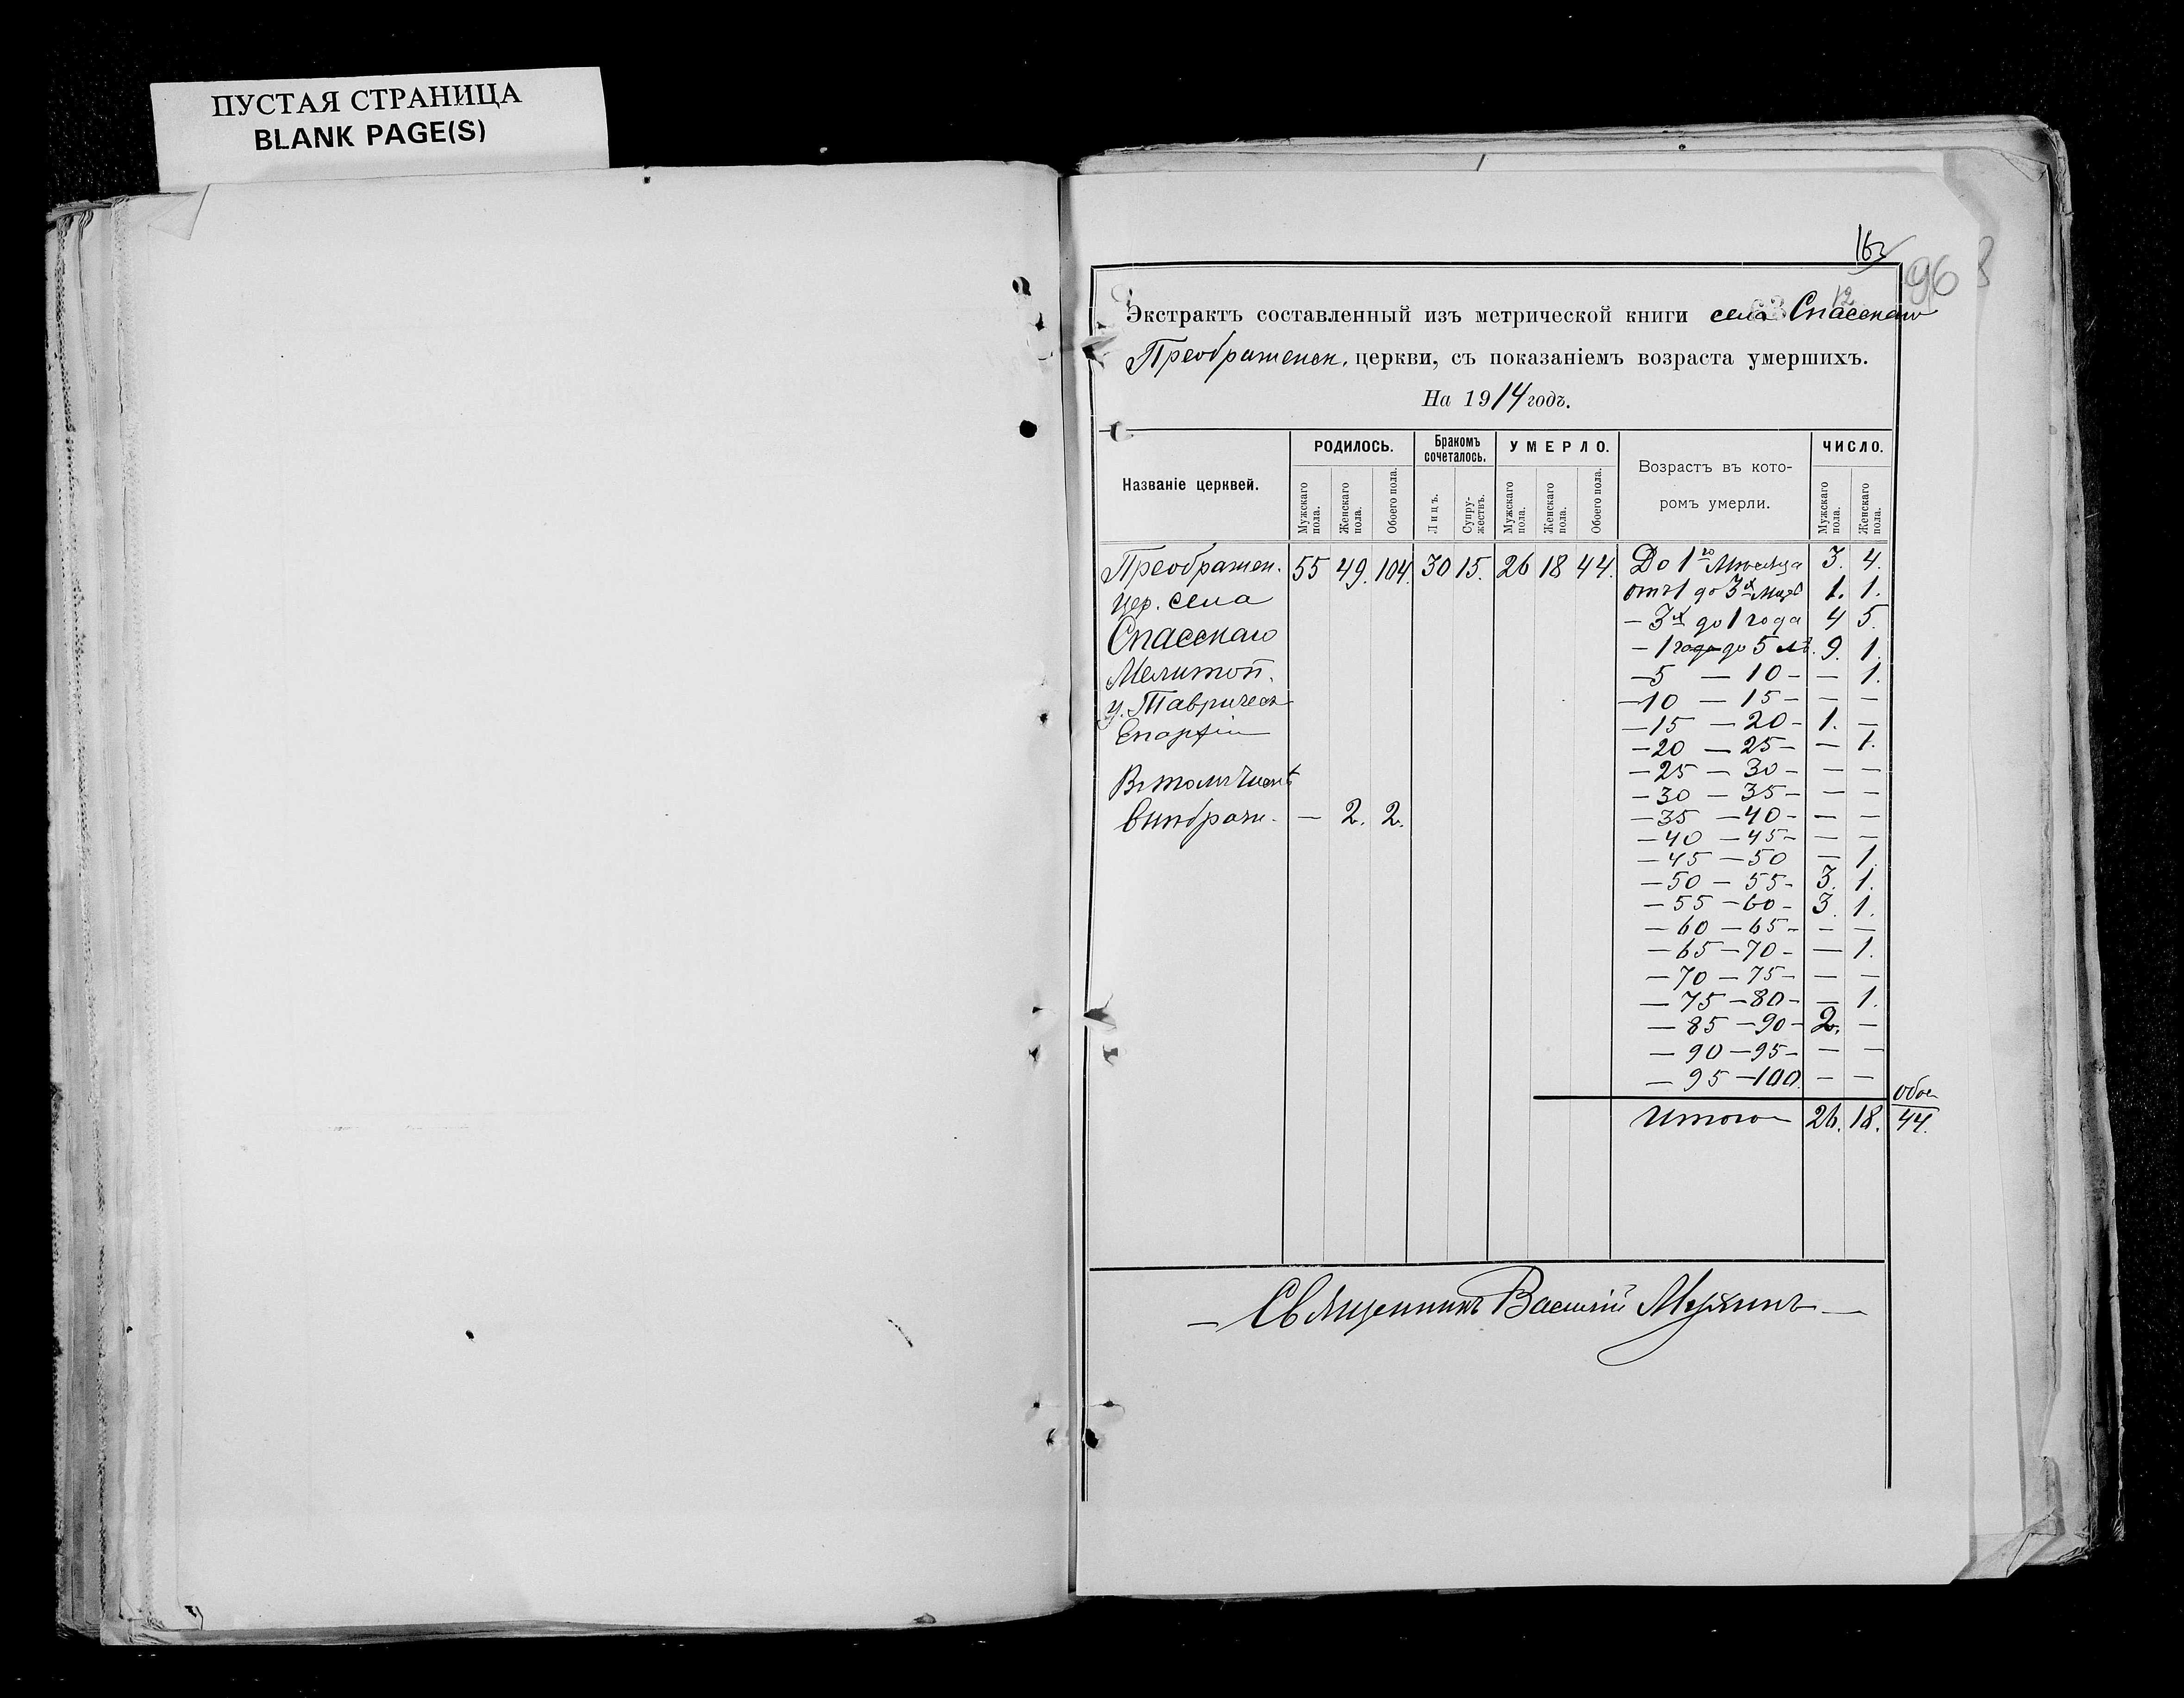 ПУСТАЯ СТРАНИЦА
BLANK PAGE(S)
96
12
63
Экстрактъ составленный изъ метрической книги села Спасскаго
Преображенск. церкви, съ показаніемъ возраста умершихъ.
На 1914 годъ.
Названіе церквей. РОДИЛОСЬ. Бракомъ сочеталось. УМЕРЛО. Возрастъ въ кото- ЧИСЛО.
ромъ умерли.
Мужскаго пола. Женскаго пола. Обоего пола. Лицъ. Супружествъ. Мужскаго пола. Женскаго пола. Обоего пола. Мужскаго пола. Женскаго пола.
Преображен. 55 49. 104. 30 15. 26 18 44. До 1го Мѣсяца 3. 4.
цер. села отъ 1 до 3х 1. 1.
Спасскаго – 3х до 1 года 4 5.
– 1 года до 5 л. 9. 1.
Мелитоп. – 5 – 10 – – 1.
у. Тавричес – 10 – 15 – – –
Епархіи – 15 – 20 – 1. –
– 20 – 25 – – 1.
Въ томъ числѣ – 25 – 30 – – –
– 30 – 35 – – –
внѣбрачн. – 2. 2. – 35 – 40 – – –
– 40 – 45 – – –
– 45 – 50 – 1.
– 50 – 55 – 3. 1.
– 55 – 60 – 3. 1.
– 60 – 65 – – –
– 65 – 70 – – 1.
– 70 – 75 – – –
– 75 – 80 – – 1.
– 85 – 90 – 2. –
– 90 – 95 – – –
– 95 – 100. – –
обое
Итого 26. 18. 44.
– Священникъ Василій –